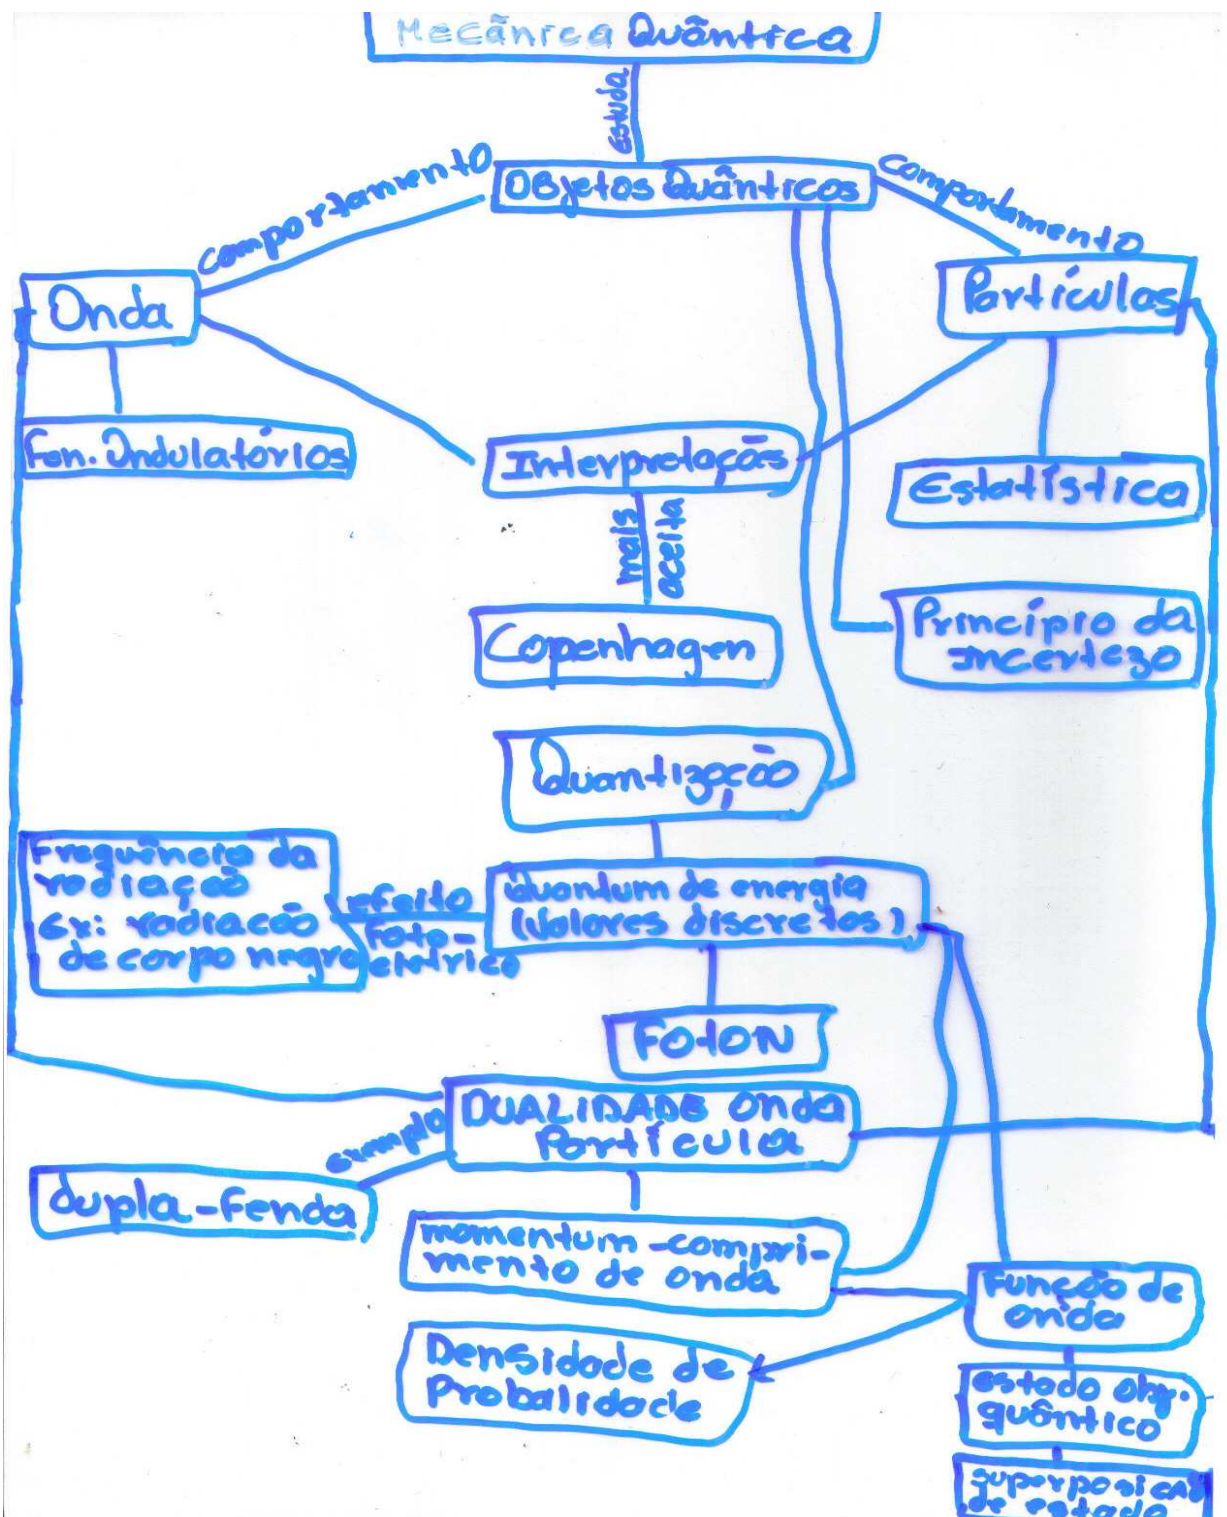 Mecãnica Quântica
Estuda
comportamento
Objetos Quânticos
comportamento
Onda
Partículas
Fen. Ondulatórios
Interpretações
Estatística
mais
aceita
Copenhagen
Princípio da
Incerteza
Quantização
Frequência da
radiação
Ex: radiacão
de corpo negro
efeito
Foto-
eletrico
Quantum de energia
(Valores discretos)
FotoN
DUALIDADE onda
Partícula
exemplo
dupla-Fenda
momentum-compri-
mento de onda
Função de
onda
Densidade de
Probalidade
estado obj.
quântico
superposicão
de estado